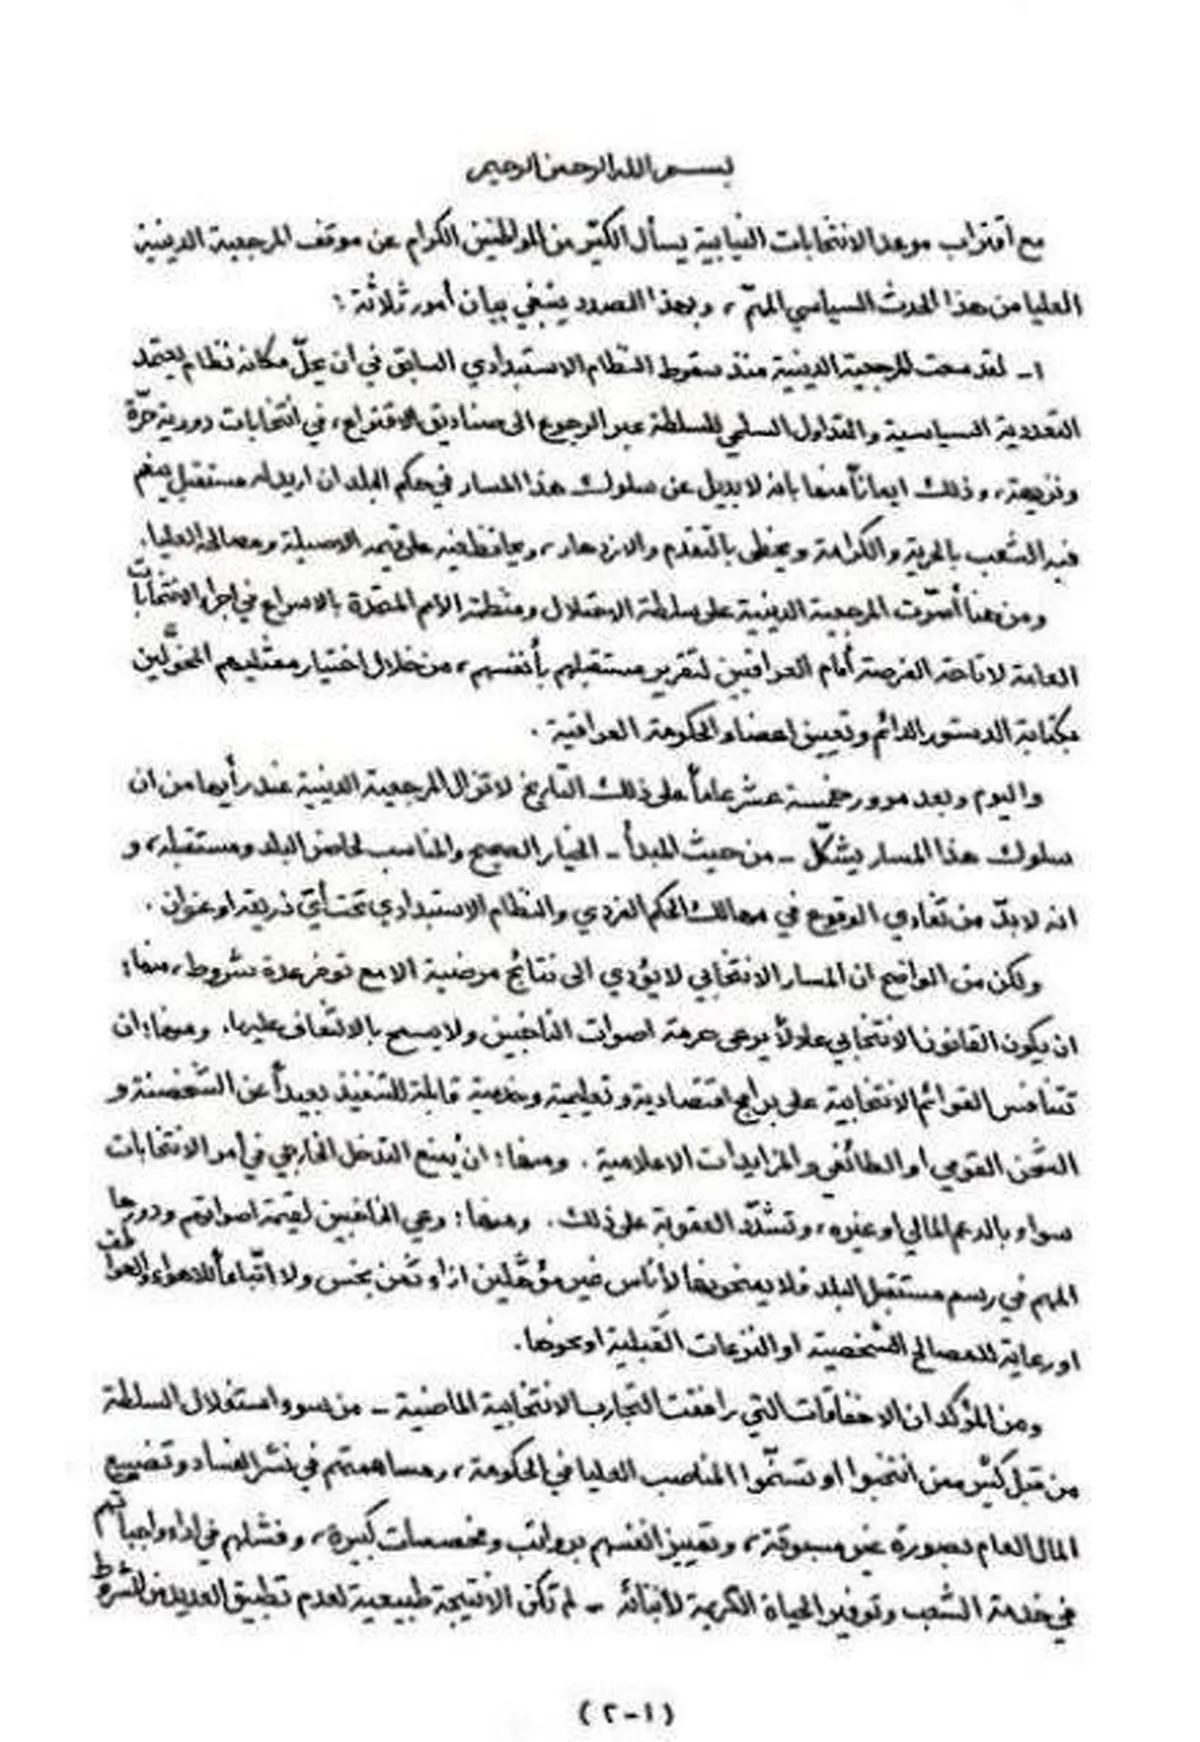 بسم الله الرحمن الرحيم
مع اقتراب موعد الانتخابات النيابية يسأل الكثير من المواطنين الكرام عن موقف المرجعية الدينية
العليا من هذا الحدث السياسي المهمّ، وبهذا الصدد ينبغي بيان أمور ثلاثة:
١- لقد سعت المرجعية الدينية منذ سقوط النظام الاستبدادي السابق في ان يحلّ مكانه نظام يعتمد
التعددية السياسية والتداول السلمي للسلطة عبر الرجوع الى صناديق الاقتراع، في انتخابات دورية حرّة
ونزيهة، وذلك ايماناً منها بانه لا بديل عن سلوك هذا المسار في حكم البلد ان اريد له مستقبل ينعم
فيه الشعب بالحرية والكرامة ويحظى بالتقدم والازدهار، ويحافظ فيه على قيمه الاصيلة ومصالحه العليا.
ومن هنا أصرّت المرجعية الدينية على سلطة الاحتلال ومنظمة الامم المتحدة بالاسراع في اجراء الانتخابات
العامة لاتاحة الفرصة أمام العراقيين لتقرير مستقبلهم بأنفسهم، من خلال اختيار ممثليهم المخوَّلين
بكتابة الدستور الدائم وتعيين اعضاء الحكومة العراقية.
واليوم وبعد مرور خمسة عشر عاماً على ذلك التاريخ لا تزال المرجعية الدينية عند رأيها من ان
سلوك هذا المسار يشكّل - من حيث المبدأ - الخيار الصحيح والمناسب لحاضر البلد ومستقبله، و
انه لا بدّ من تفادي الوقوع في مهالك الحكم الفردي والنظام الاستبدادي تحت أيّ ذريعة او عنوان.
ولكن من الواضح ان المسار الانتخابي لا يؤدي الى نتائج مرضية الا مع توفر عدة شروط، منها:
ان يكون القانون الانتخابي عادلاً يرعى حرمة اصوات الناخبين ولا يسمح بالالتفاف عليها. ومنها: ان
تتنافس القوائم الانتخابية على برامج اقتصادية وتعليمية وخدمية قابلة للتنفيذ بعيداً عن الشخصنة و
الشحن القومي او الطائفي والمزايدات الاعلامية. ومنها: ان يُمنع التدخل الخارجي في أمر الانتخابات
سواء بالدعم المالي او غيره، وتشدّد العقوبة على ذلك. ومنها: وعي الناخبين لقيمة اصواتهم ودورها
المهم في رسم مستقبل البلد فلا يمنحونها لأناس غير مؤهّلين ازاء ثمن بخس ولا اتّباعاً للاهواء والعواطف
او رعاية للمصالح الشخصية او النزعات القَبلية او نحوها.
ومن المؤكد ان الاخفاقات التي رافقت التجارب الانتخابية الماضية - من سوء استغلال السلطة
من قبل كثير ممن انتخبوا او تسنّموا المناصب العليا في الحكومة، ومساهمتهم في نشر الفساد وتضييع
المال العام بصورة غير مسبوقة، وتمييز انفسهم برواتب ومخصصات كبيرة، وفشلهم في اداء واجباتهم
في خدمة الشعب وتوفير الحياة الكريمة لأبنائه - لم تكن الا نتيجة طبيعية لعدم تطبيق العديد من الشروط
(١-٢)